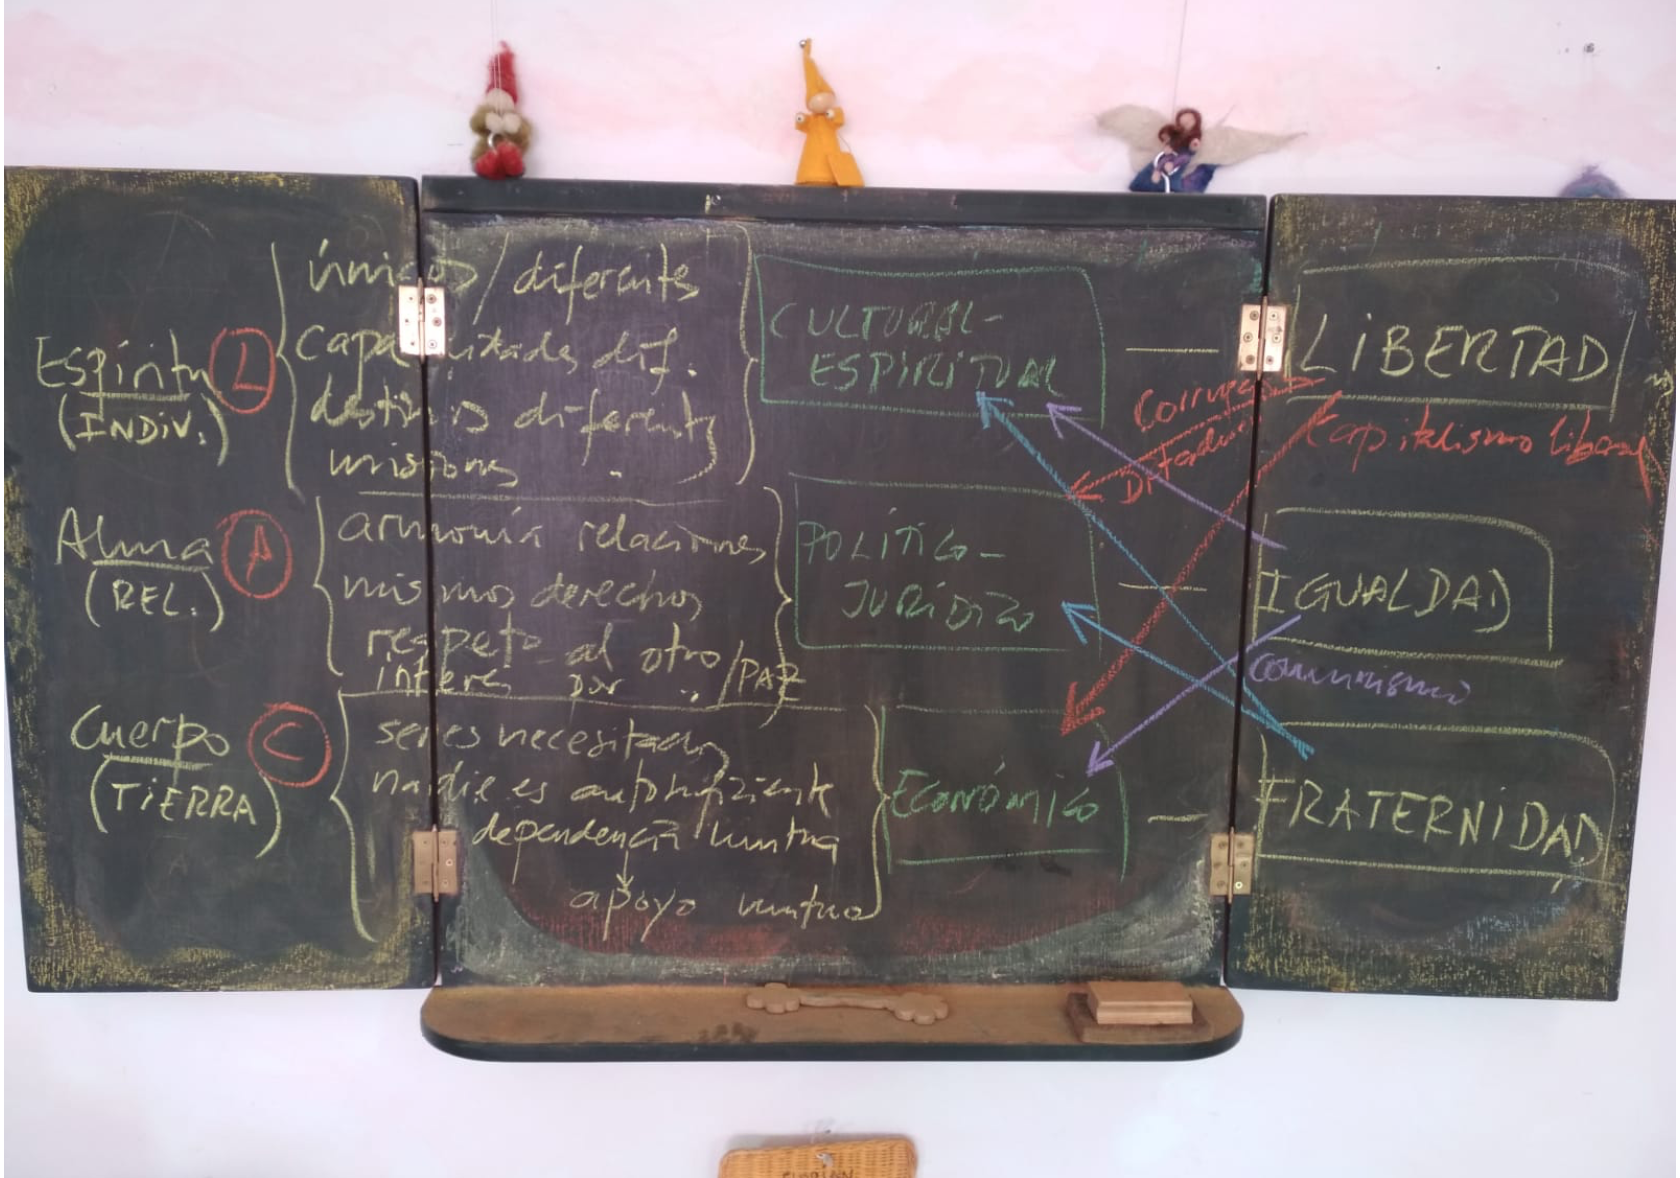 Espíritu
(INDIV.)
L
únicos / diferentes
capacidades dif.
destinos diferentes
misiones
CULTURAL-
ESPIRITUAL
—
LIBERTAD
Corrupción
Dictadura
Capitalismo liberal
Alma
(REL.)
A
armonía relaciones
mismos derechos
respeto al otro / PAZ
interés por "
POLÍTICO-
JURÍDICO
—
IGUALDAD
comunismo
Cuerpo
(TIERRA)
C
seres necesitados
nadie es autosuficiente
dependencia mutua
apoyo mutuo
ECONÓMICO
—
FRATERNIDAD